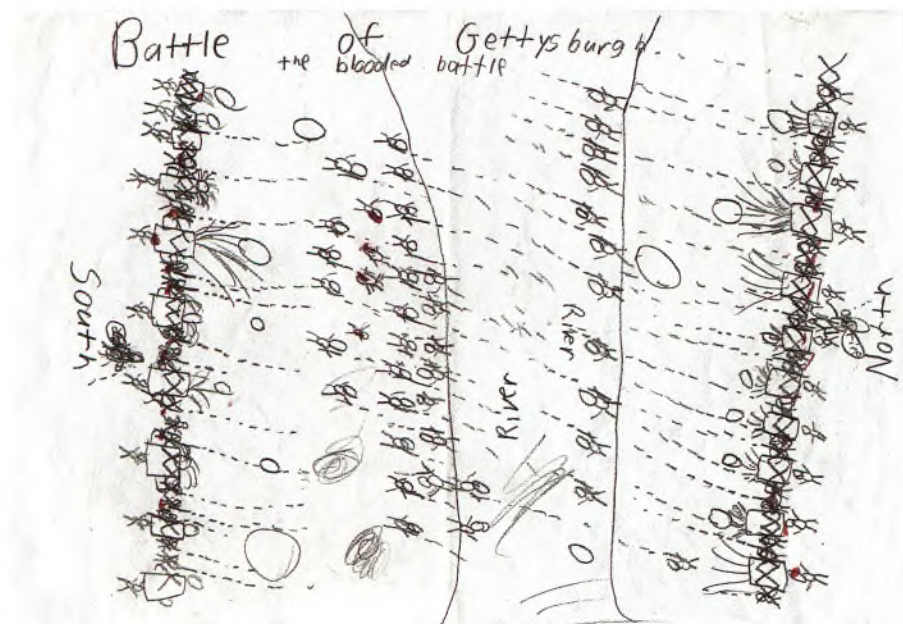 Battle of Gettysburgh.
the blooded battle
South
River
River
North